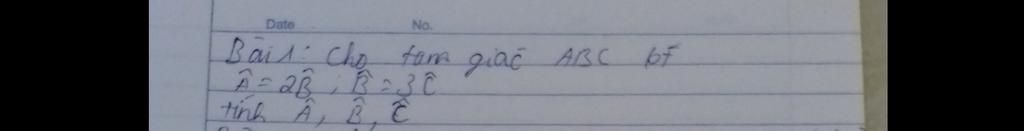 Date No.
Bài 1: Cho tam giác ABC bt
Â = 2B̂ ; B̂ = 3Ĉ
tính Â, B̂, Ĉ